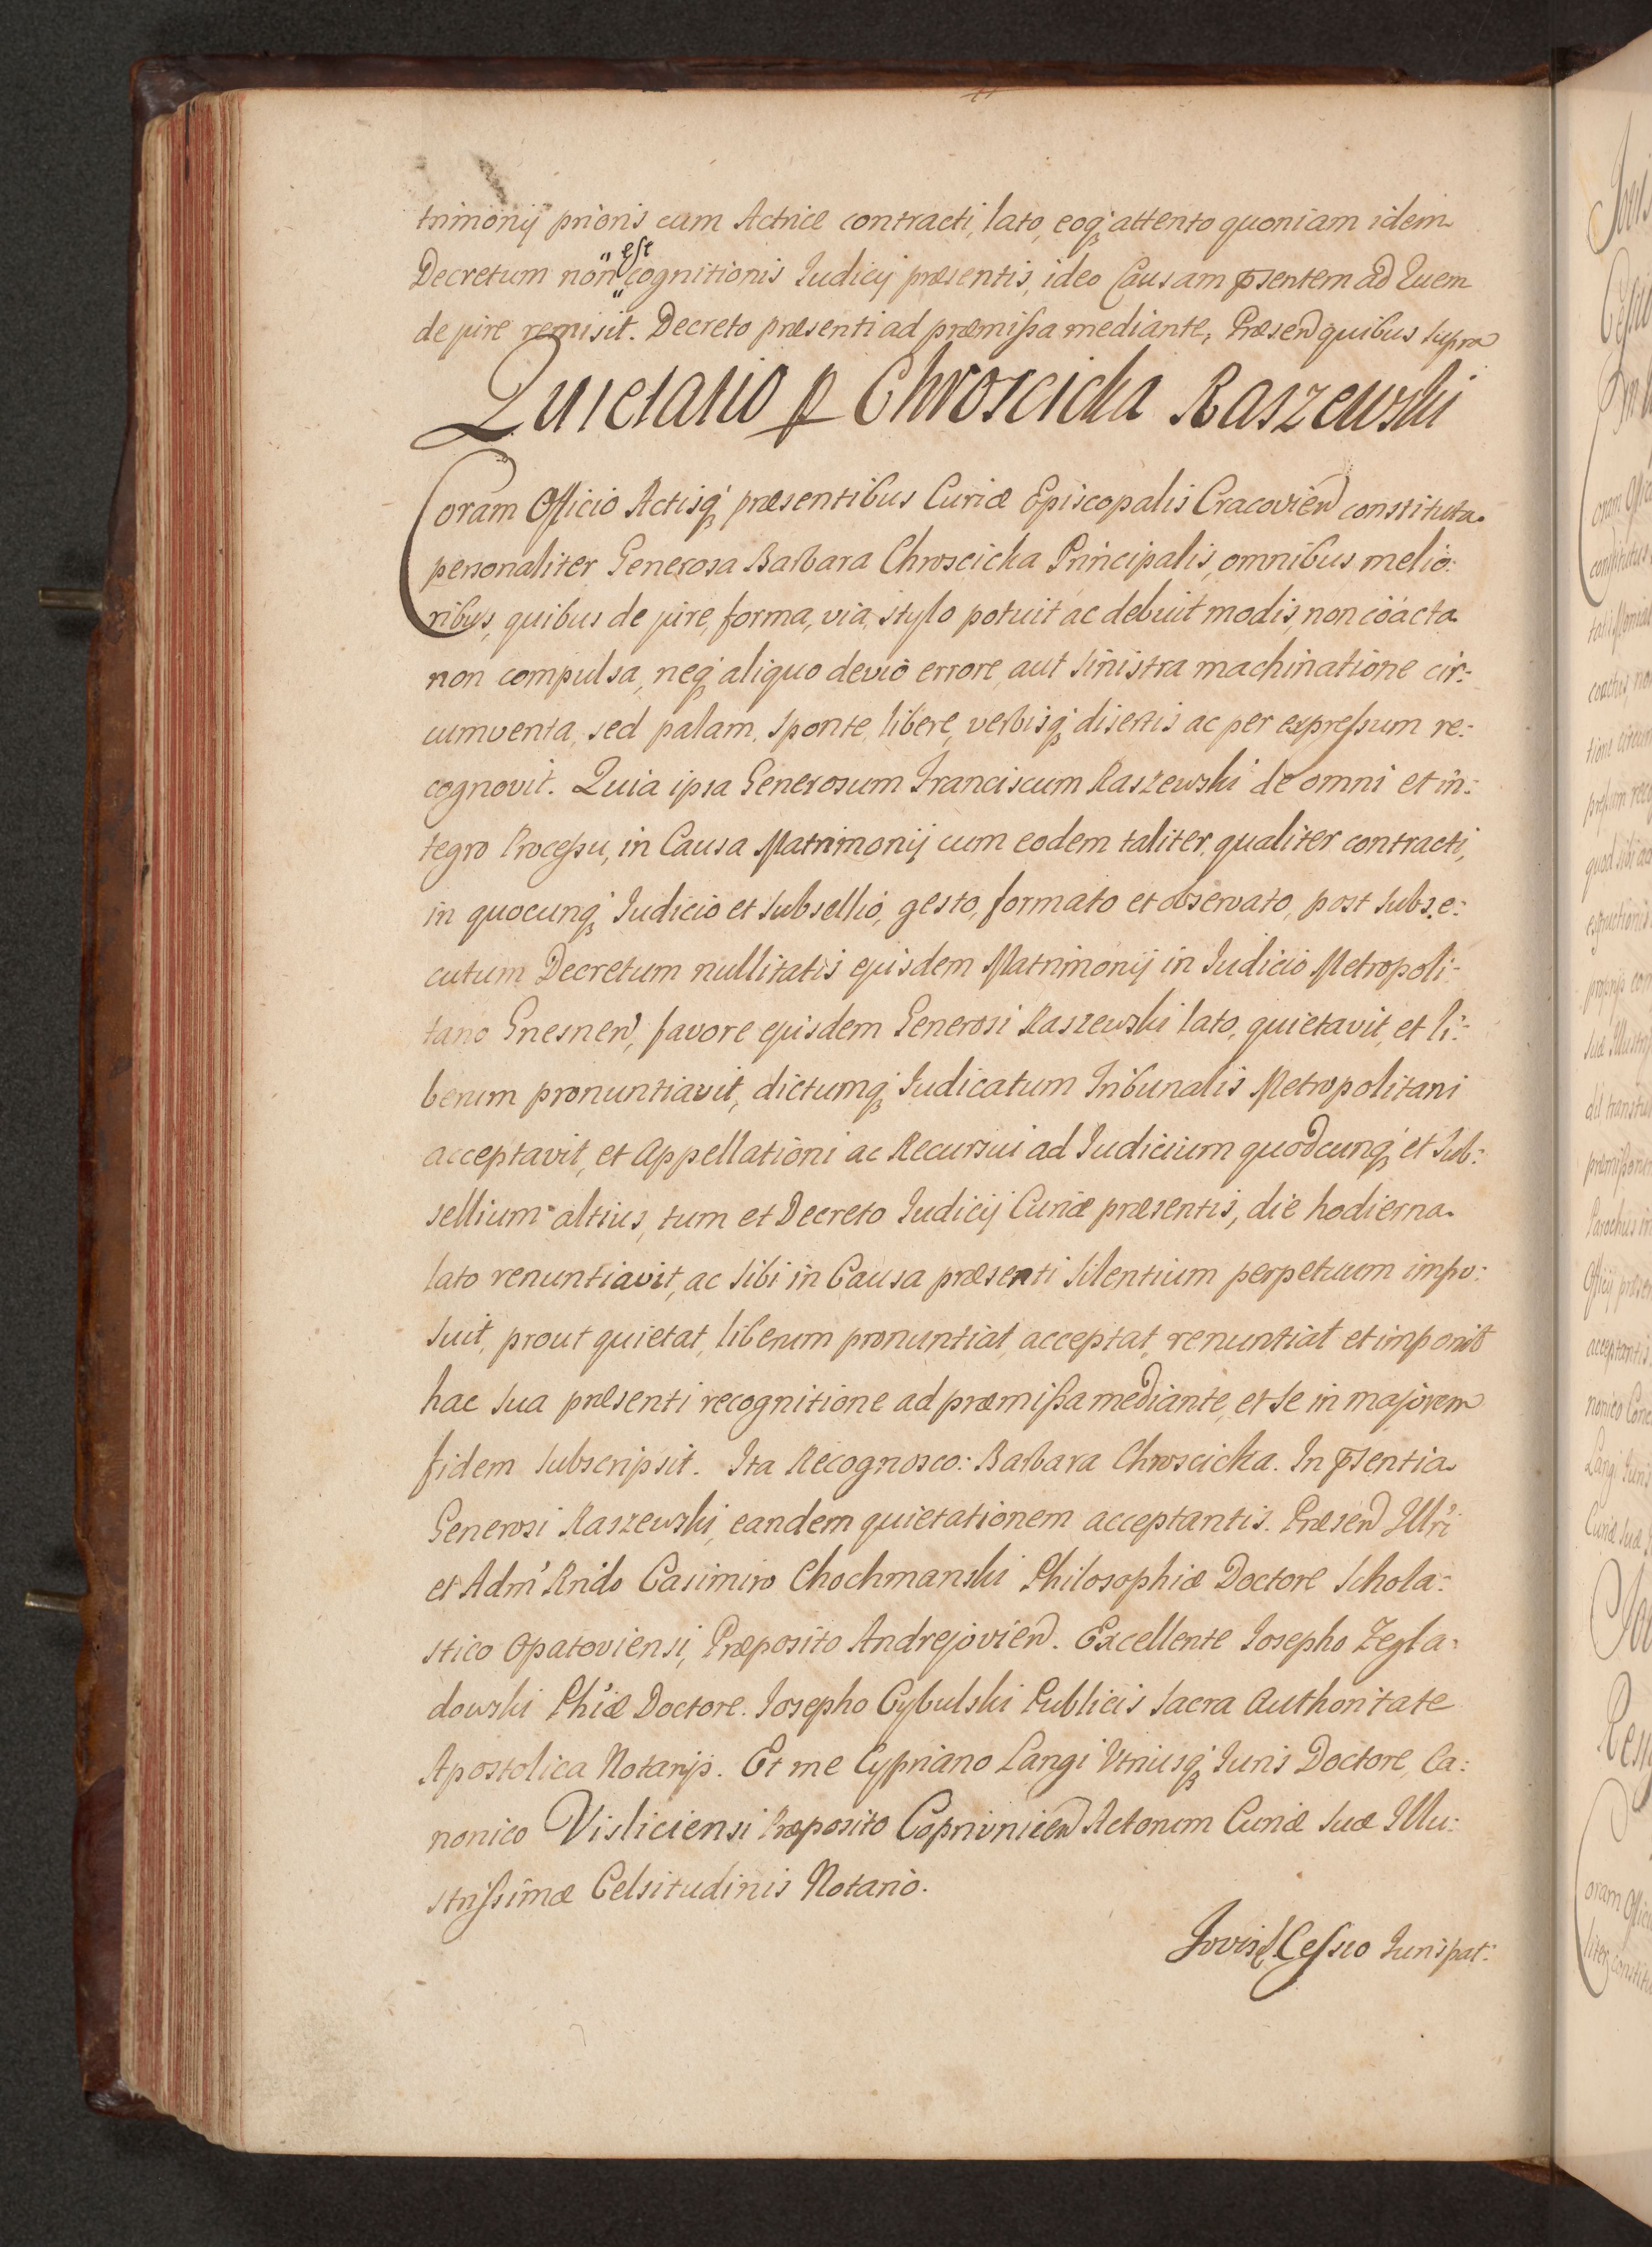 trimonij prioris cum Actrice contracti, lato, eoq; attento quoniam idem
Decretum non est cognitionis Iudicij præsentis, ideo Causam pſentem ad Quem
de jure remisit. Decreto præsenti ad præmiſsa mediante, Præsen quibus supra
Quietatio p Chroscicka Raszewski
Coram Officio Actisq; præsentibus Curiæ Episcopalis Cracovien constituta
personaliter Generosa Barbara Chroscicka Principalis, omnibus melio:
ribus, quibus de jure, forma, via, stylo potuit ac debuit modis, non coacta
non compulsa, neq; aliquo devio errore, aut sinistra machinatione cir:
cumventa, sed palam, sponte, libere, verbisq; disertis ac per expreſsum re:
cognovit. Quia ipsa Generosum Franciscum Raszewski de omni et in:
tegro Proceſsu, in Causa Matrimonij cum eodem taliter qualiter contracti,
in quocunq; Iudicio et Subsellio, gesto, formato et observato, post subse:
cutum Decretum nullitatis ejusdem Matrimonij in Iudicio Metropoli:
tano Gnesnen, favore ejusdem Generosi Raszewski lato, quietavit, et li:
berum pronuntiavit, dictumq; Iudicatum Tribunalis Metropolitani
acceptavit, et Appellationi ac Recursui ad Iudicium quodcunq; et Sub:
sellium altius, tum et Decreto Iudicij Curiæ præsentis, die hodierna
lato renuntiavit, ac sibi in Causa præsenti silentium perpetuum impo:
suit, prout quietat, liberum pronuntiat, acceptat, renuntiat et imponit
hac sua præsenti recognitione ad præmiſsa mediante, et se in majorem
fidem subscripsit. Ita Recognosco: Barbara Chroscicka. In pſentia
Generosi Raszewski, eandem quietationem acceptantis. Præsen Illri
et Adm Rndo Casimiro Chochmanski Philosophiæ Doctore Schola:
stico Opatoviensi, Præposito Andrejovien. Excellente Iosepho Zegla:
dowski Phiæ Doctore. Iosepho Cybulski Publicis Sacra Authoritate
Apostolica Notarijs. Et me Cypriano Langi Utriusq; Iuris Doctore, Ca:
nonico Visliciensi Præposito Coprivnicen Actorum Curiæ Suæ Illu:
striſsimæ Celsitudinis Notario.
Ceſsio Iurispat: